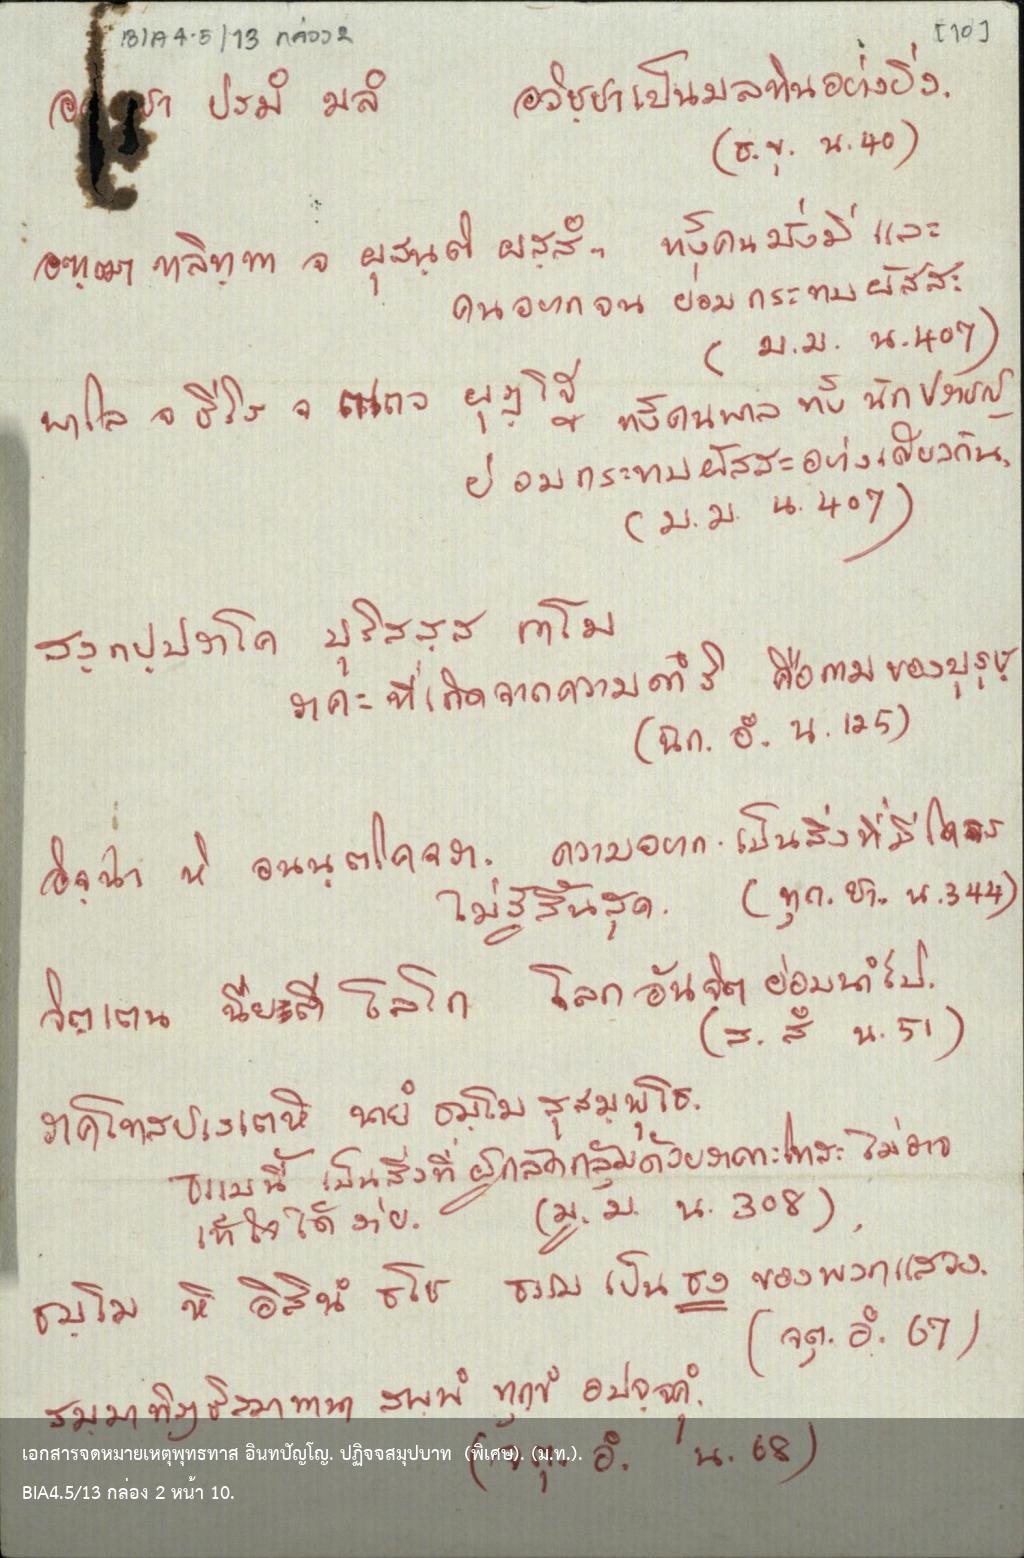 BIA4.5/13 กล่อง 2 [10]
ปรมํ มลํ อวิชฺชาเป็นมลทินอย่างยิ่ง.
(ธ.ขุ. น.40)
อฑฺฒา ทลิทฺทา จ ผุสนฺติ ผสฺสํ ทั้งคนมั่งมี และ
คนอยากจน ย่อมกระทบผัสสะ
(ม.ม. น.407)
พาโล จ ธีโร จ ตเถว ผุฏฺโฐ ทั้งคนพาล ทั้งนักปราชญ์
ย่อมกระทบผัสสะอย่างเดียวกัน.
(ม.ม. น.407)
สงฺกปฺปราโค ปุริสสฺส กาโม
ราคะที่เกิดจากความดำริ คือกามของบุรุษ
(ฉกฺ. อํ. น.125)
อิจฺฉา หิ อนนฺตโคจรา. ความอยาก เป็นสิ่งที่มี
ไม่รู้สิ้นสุด. (ทุก. ชา. น.344)
จิตฺเตน นียตี โลโก โลกอันจิต ย่อมนำไป.
(ส. สํ น.51)
ราคโทสปเรเตหิ นายํ ธมฺโม สุสมฺพุโธ.
ธรรมนี้ เป็นสิ่งที่ผู้กลัดกลุ้มด้วยราคะโทสะ ไม่อาจ
เข้าใจได้ง่าย. (มู.ม. น.308)
ธมฺโม หิ อิสินํ ธโช ธรรม เป็นธง ของพวกแสวง.
(จตุ. อํ. 67)
สมฺมาทิฏฺฐิสมาทานา สพฺพํ ทุกฺขํ อุปจฺจคุํ.
(จตุ. อํ. น.68)
เอกสารจดหมายเหตุพุทธทาส อินทปัญโญ. ปฏิจจสมุปบาท (พิเศษ). (ม.ท.).
BIA4.5/13 กล่อง 2 หน้า 10.